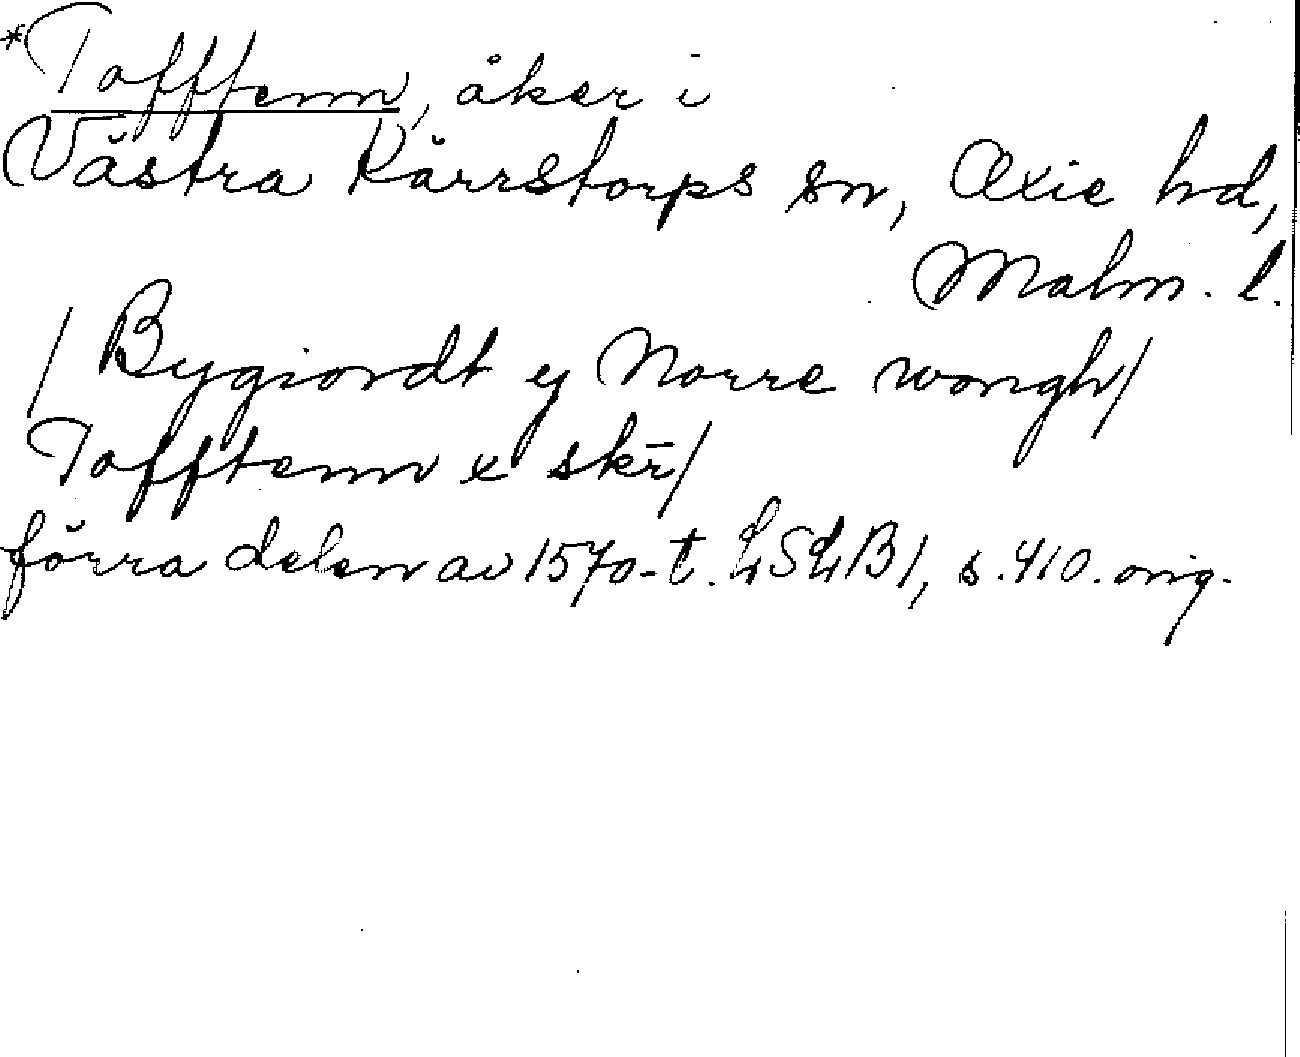 *Tofftenn, åker i
Västra Kärrstorps sn, Oxie hd,
Malm. l.
/ Bygiordt y Norre wongh /
Tofftenn x skr̄ /
förra delen av 1570-t. LSLB1, s. 410. orig.